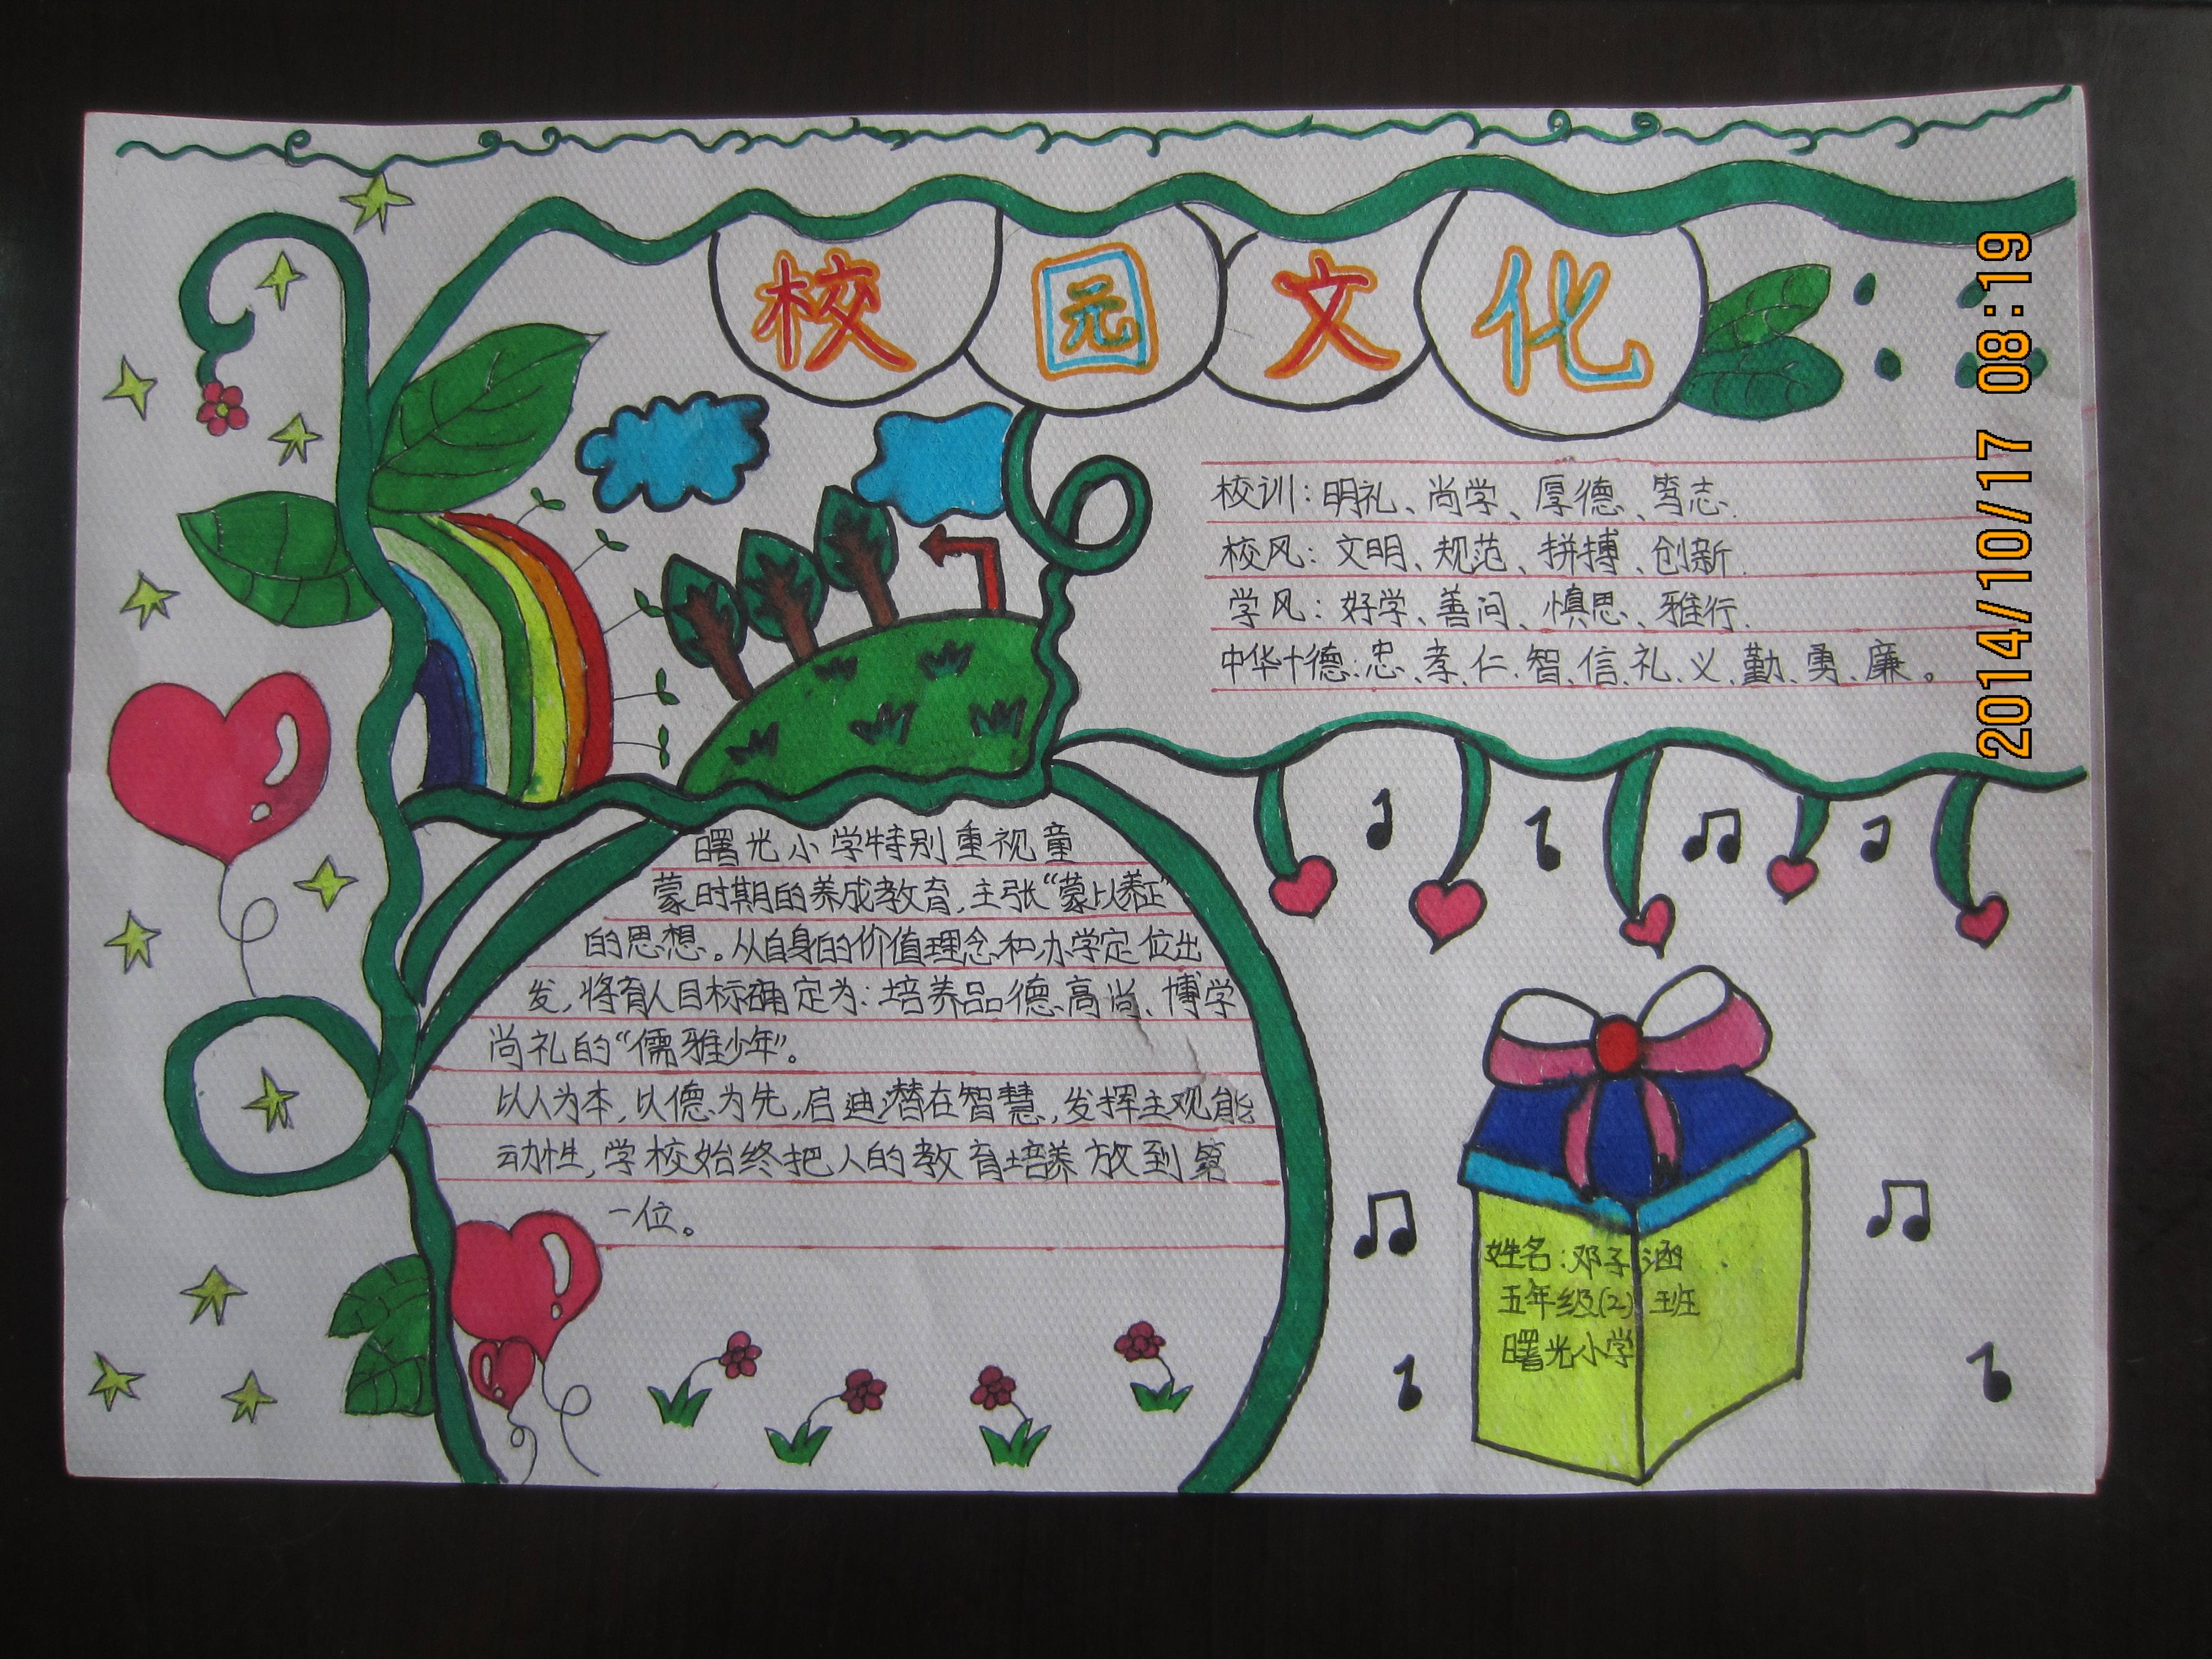 校园文化
校训：明礼、尚学、厚德、笃志.
校风：文明、规范、拼搏、创新.
学风：好学、善问、慎思、雅行.
中华十德：忠、孝、仁、智、信、礼、义、勤、勇、廉。
曙光小学特别重视童
蒙时期的养成教育,主张“蒙以养正”
的思想。从自身的价值理念和办学定位出
发,将育人目标确定为：培养品德高尚、博学
尚礼的“儒雅少年”。
以人为本,以德为先,启迪潜在智慧,发挥主观能
动性,学校始终把人的教育培养放到第
一位。
姓名：邓子涵
五年级(2)班
曙光小学
2014/10/17 08:19